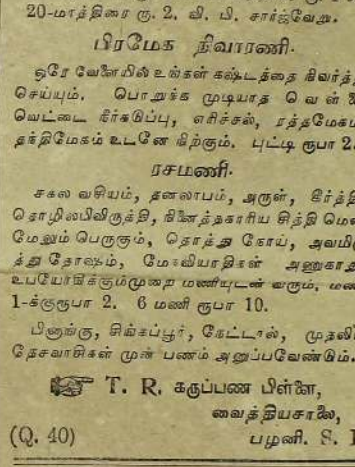 20-மாத்திரை ரூ. 2. வி. பி. சார்ஜ்வேறு.
பிரமேக நிவாரணி.
ஒரே வேளையில் உங்கள் கஷ்டத்தை நிவர்த்தி
செய்யும். பொறுக்க முடியாத வெள்ளை
வெட்டை நீர்கடுப்பு, எரிச்சல், ரத்தமேகம்
தந்திமேகம் உடனே நிற்கும். புட்டி ரூபா 2.
ரசமணி.
சகல வசியம், தனலாபம், அருள், கீர்த்தி
தொழிலபிவிருத்தி, நினைத்தகாரிய சித்தி
மேலும்பெருகும், தொத்து நோய்,
த்துதோஷம், மேகவியாதிகள் அணுகாது
உபயோகிக்கும்முறை மணியுடன் வரும்.
1-க்குரூபா 2. 6 மணி ரூபா 10.
பினாங்கு, சிங்கப்பூர், கேட்டால்,
தேசவாசிகள் முன் பணம் அனுப்பவேண்டும்.
T. R. கருப்பண பிள்ளை,
வைத்தியசாலை,
(Q. 40) பழனி. S. I